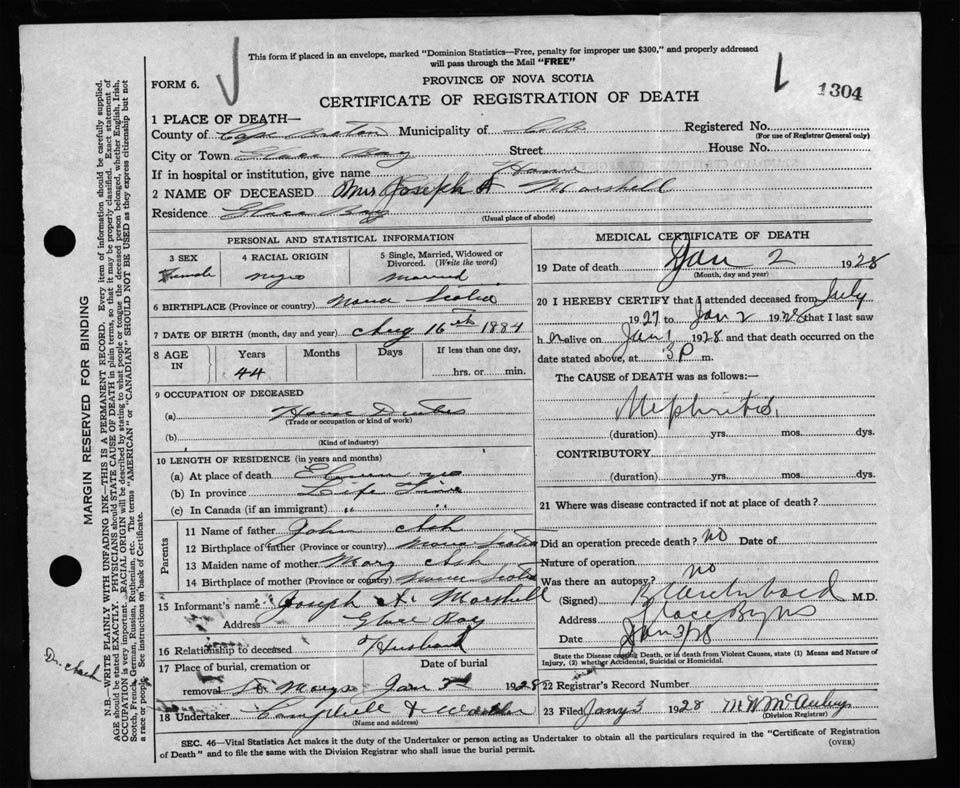 This form if placed in an envelope, marked "Dominion Statistics—Free, penalty for improper use $300," and properly addressed
will pass through the Mail "FREE"
FORM 6.
PROVINCE OF NOVA SCOTIA
1304
CERTIFICATE OF REGISTRATION OF DEATH
1 PLACE OF DEATH—
County of Cape Breton Municipality of C.B. Registered No.
(For use of Registrar General only)
City or Town Glace Bay Street House No.
If in hospital or institution, give name Home
2 NAME OF DECEASED Mrs Joseph A Marshell
Residence Glace Bay
(Usual place of abode)
PERSONAL AND STATISTICAL INFORMATION
3 SEX
Female
4 RACIAL ORIGIN
negro
5 Single, Married, Widowed or
Divorced. (Write the word)
Married
6 BIRTHPLACE (Province or country) Nova Scotia
7 DATE OF BIRTH (month, day and year) Aug 16th 1884
8 AGE
IN
Years Months Days If less than one day,
44 hrs. or min.
9 OCCUPATION OF DECEASED
(a) House Duties
(Trade or occupation or kind of work)
(b)
(Kind of industry)
10 LENGTH OF RESIDENCE (in years and months)
(a) At place of death
(b) In province Life Time
(c) In Canada (if an immigrant) " "
Parents
11 Name of father John Ash
12 Birthplace of father (Province or country) Nova Scotia
13 Maiden name of mother Mary Ash
14 Birthplace of mother (Province or country) Nova Scotia
15 Informant's name Joseph A. Marshell
Address Glace Bay
16 Relationship to deceased Husband
17 Place of burial, cremation or Date of burial
removal St Marys Jan 1928
18 Undertaker Campbell &
(Name and address)
MEDICAL CERTIFICATE OF DEATH
19 Date of death Jan 2 1928
(Month, day and year)
20 I HEREBY CERTIFY that I attended deceased from July
1927 to Jan 2 1928 that I last saw
h alive on Jan 1 1928 and that death occurred on the
date stated above, at 3 P m.
The CAUSE of DEATH was as follows:—
Nephritis,
(duration) yrs. mos. dys.
CONTRIBUTORY
(duration) yrs. mos. dys.
21 Where was disease contracted if not at place of death?
Did an operation precede death? no Date of
Nature of operation
Was there an autopsy? no
(Signed) Archibald M.D.
Address Glace Bay NS
Date Jan 3/28
State the Disease causing Death, or in death from Violent Causes, state (1) Means and Nature of
Injury, (2) whether Accidental, Suicidal or Homicidal.
22 Registrar's Record Number
23 Filed Jany 3 1928 M W McAuley
(Division Registrar)
SEC. 46—Vital Statistics Act makes it the duty of the Undertaker or person acting as Undertaker to obtain all the particulars required in the "Certificate of Registration
of Death" and to file the same with the Division Registrar who shall issue the burial permit.
(OVER)
MARGIN RESERVED FOR BINDING
N.B.—WRITE PLAINLY WITH UNFADING INK—THIS IS A PERMANENT RECORD. Every item of information should be carefully supplied.
AGE should be stated EXACTLY. PHYSICIANS should STATE CAUSE OF DEATH in plain terms, so that it may be properly classified. Exact statement of
OCCUPATION is very important. RACIAL ORIGIN will be described by stating to what people or tongue the deceased person belonged, whether English, Irish,
Scotch, French, German, Russian, Ruthenian, etc. The terms "AMERICAN" or "CANADIAN" SHOULD NOT BE USED as they express citizenship but not
a race or people. See instructions on back of Certificate.